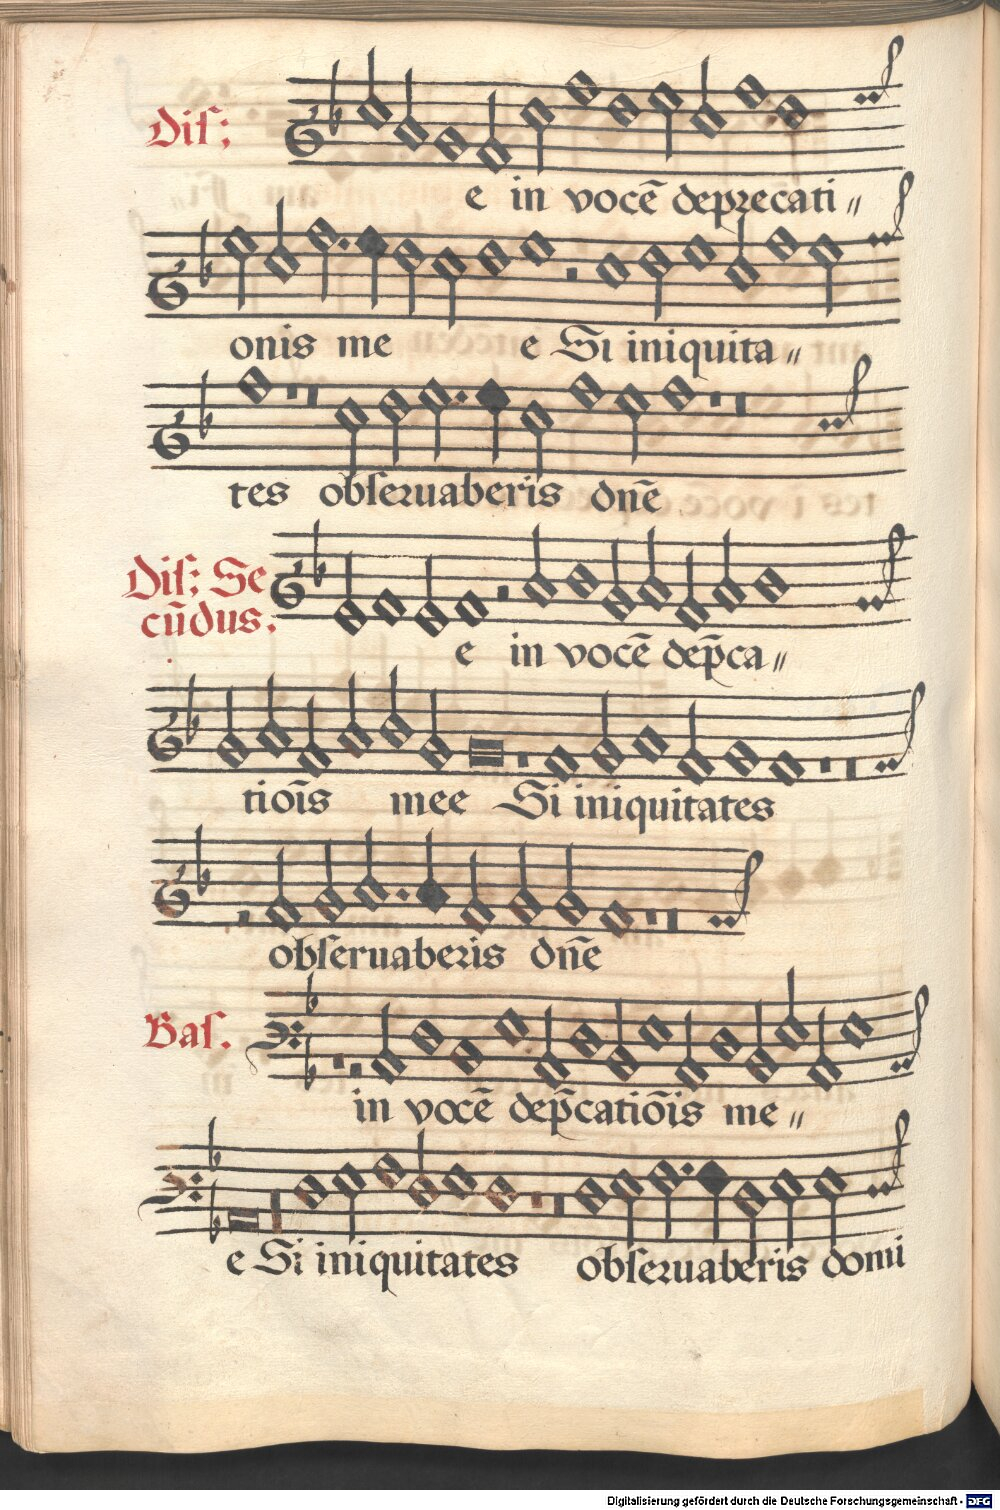 Dis:
e in vocē deprecati〃
onis me e Si iniquita〃
tes obseruaberis dn̄e
Dis: Se
cūdus.
e in vocē dep̄ca〃
tiōis mee Si iniquitates
obseruaberis dn̄e
Bas.
in vocē dep̄catiōis me〃
e Si iniquitates obseruaberis domi
Digitalisierung gefördert durch die Deutsche Forschungsgemeinschaft - DFG